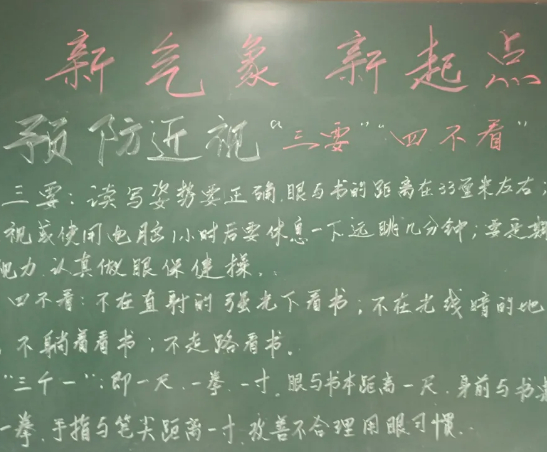 新气象 新起点
预防近视“三要”“四不看”
三要：读写姿势要正确，眼与书的距离在33厘米左右；
视或使用电脑1小时后要休息一下远眺几分钟；要定期
视力，认真做眼保健操。
四不看：不在直射的强光下看书；不在光线暗的地
，不躺着看书；不走路看书。
“三个一”：即一尺、一拳、一寸，眼与书本距离一尺，身前与书桌
一拳，手指与笔尖距离一寸，改善不合理用眼习惯。